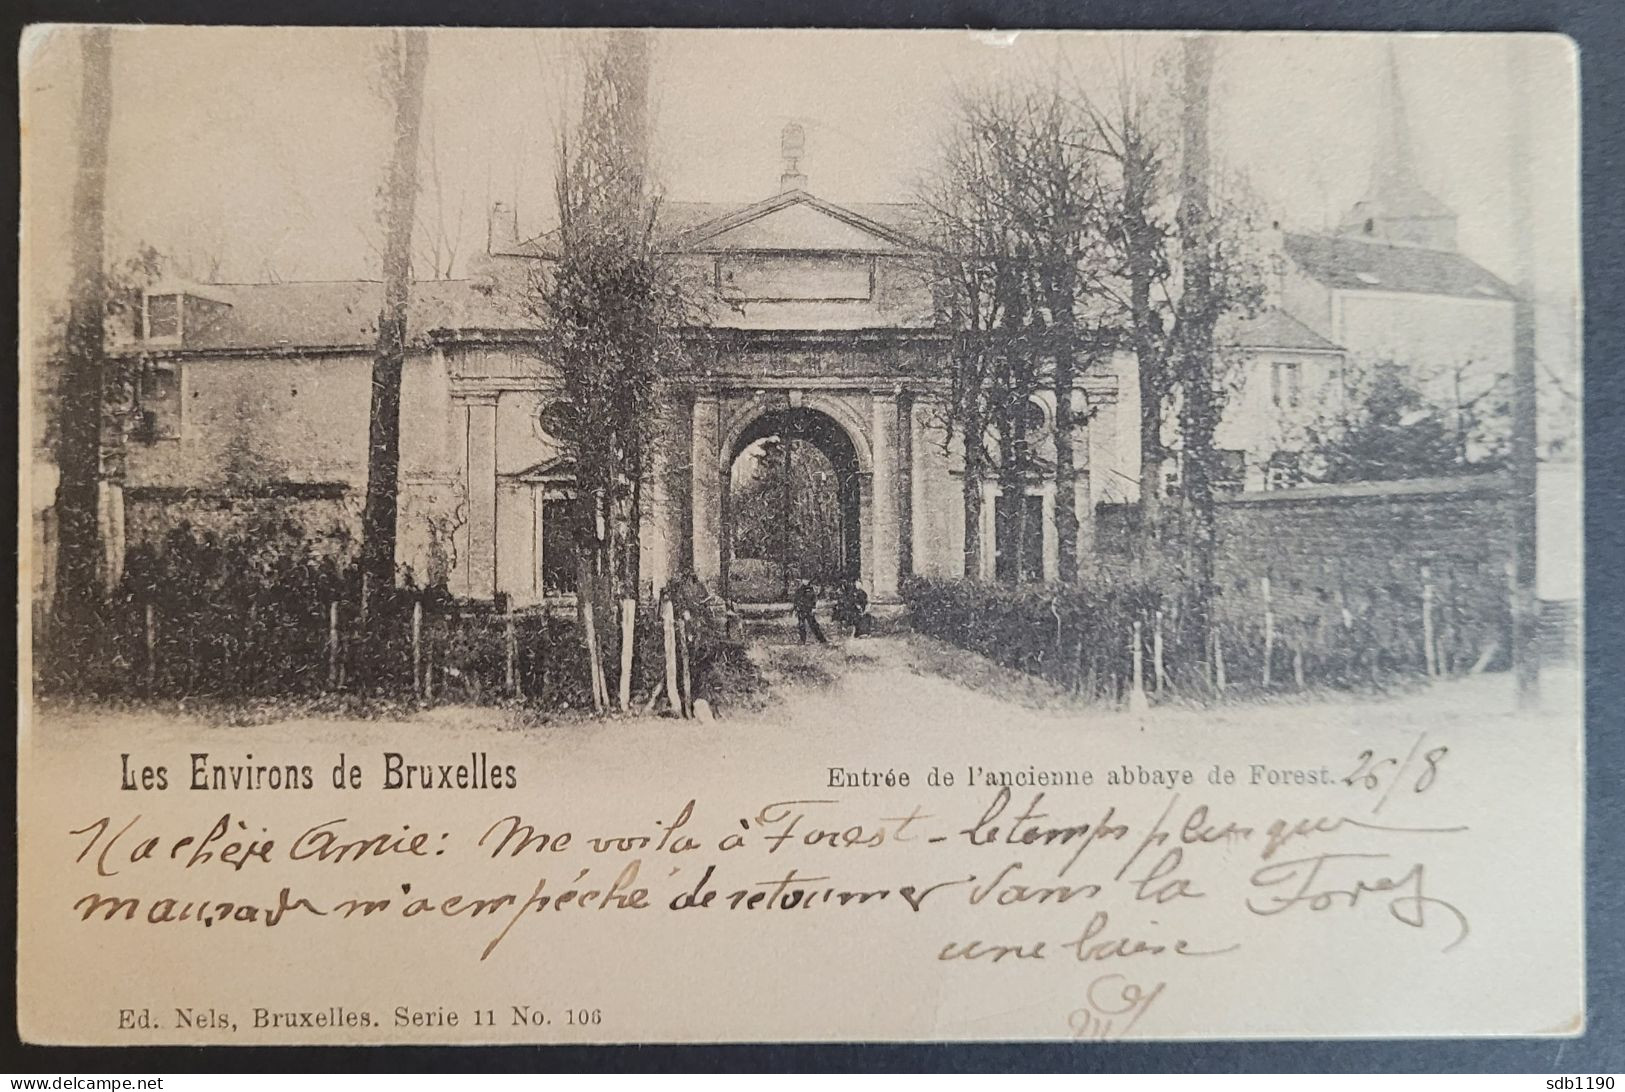 Les Environs de Bruxelles
Entrée de l'ancienne abbaye de Forest. 26/8
Ma chère Amie: Me voila à Forest - le temps plus que
mauvais m'a empéché de retourner dans la Forest
une baise
Ed. Nels, Bruxelles. Serie 11 No. 106
sdb1190